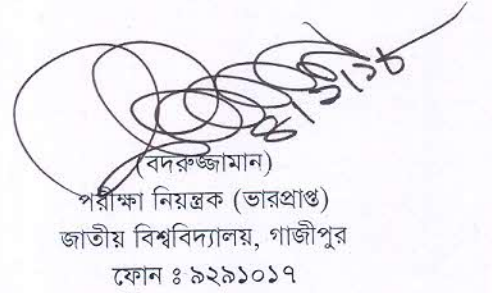 (বদরুজ্জামান)
পরীক্ষা নিয়ন্ত্রক (ভারপ্রাপ্ত)
জাতীয় বিশ্ববিদ্যালয়, গাজীপুর
ফোন ঃ ৯২৯১০১৭